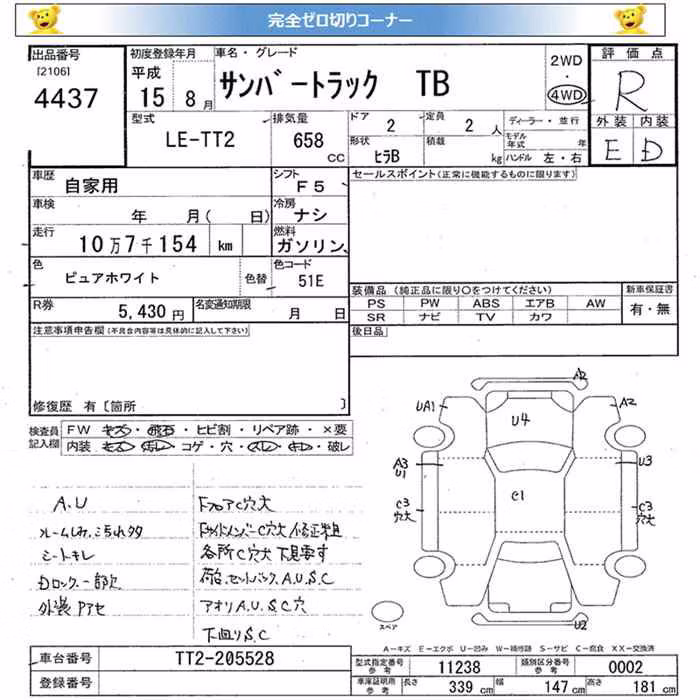 完全ゼロ切りコーナー
出品番号
[2106]
4437
初度登録年月
平成
15年 8月
車名・グレード
サンバートラック TB
2WD
・
4WD
評価点
R
外装 内装
E D
型式
LE-TT2
排気量
658
CC
ドア
2
定員
2 人
形状
ヒラB
積載
kg
ディーラー・並行
モデル年式 年
ハンドル 左・右
車歴
自家用
シフト
F5
車検
年 月( 日)
冷房
ナシ
走行
10万7千154 km
燃料
ガソリン
色
ピュアホワイト
色替
色コード
51E
R券
5,430 円
名変通知期限
月 日
セールスポイント(正常に機能するものに限ります)
装備品 (純正品に限り○をつけてください)
PS PW ABS エアB AW
SR ナビ TV カワ
新車保証書
有・無
後日品
注意事項申告欄(不具合内容等は具体的に記入して下さい)
修復歴 有[箇所 ]
検査員記入欄
FW キズ・飛石・ヒビ割・リペア跡・×要
内装 キズ・汚レ・コゲ・穴・スレ・キレ・破レ
A.U
ルームしみ、こすれタタ
シートキレ
Dロック一部欠
外装Pアセ
フロアC穴大
サイドメンバーC穴大 修正粗
各所C穴大 下見要す
荷台、セットバック、A.U.S.C
アオリA.U.S.C穴
下回りS.C
A2
UA1
U4
A2
A3
U1
U3
C3
穴大
C1
C3
穴大
U2
スペア
A-キズ E-エクボ U-凹み W-補修跡 S-サビ C-腐食 XX-交換済
車台番号
TT2-205528
登録番号
型式指定番号
参考
11238
類別区分番号
参考
0002
車庫証明用
参考
長さ
339 cm
幅
147 cm
高さ
181 cm